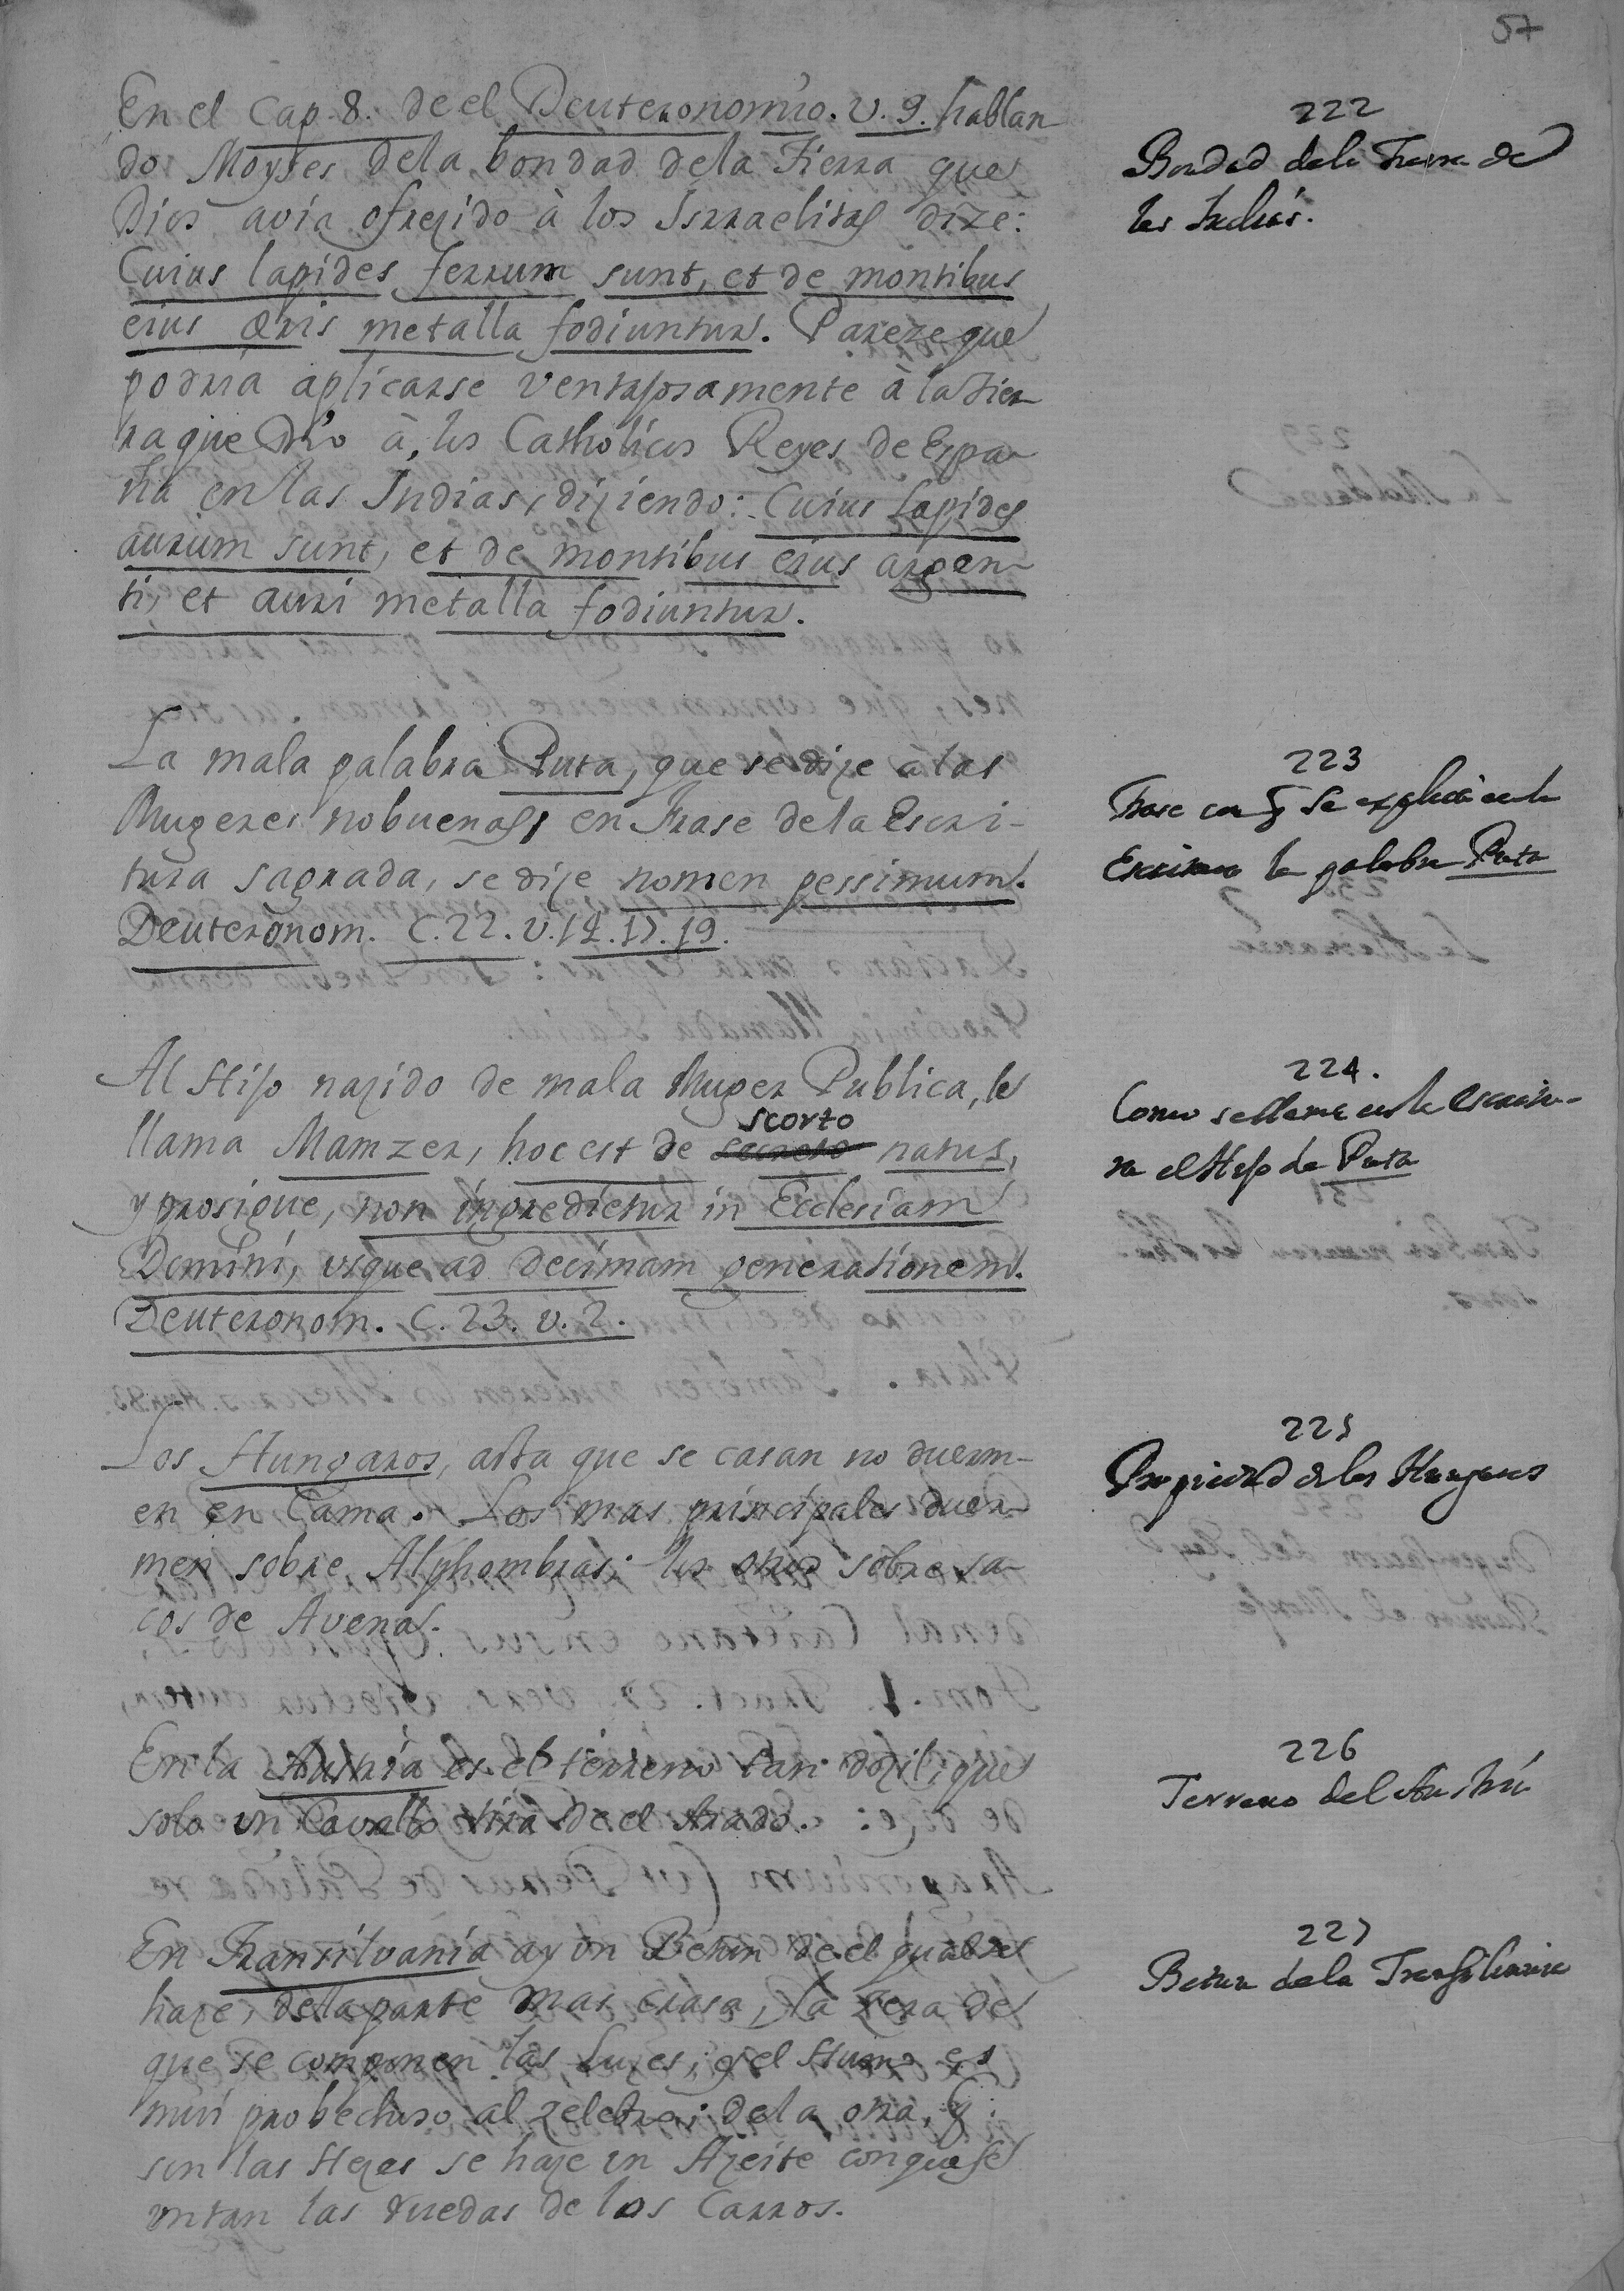 57
En el Cap. 8. de el Deuteronomio. v. 9. hablan
do Moyses dela bondad dela Tierra que
Dios avia ofrezido à los Isrraelitas dize:
Cuius lapides ferrum sunt, et de montibus
eius æris metalla fodiuntur. Pareze que
podria aplicarse ventajosamente à la tier
ra que Dio à los Catholicos Reyes de Espa
ña en las Indias, diziendo: Cuius lapides
aurum sunt, et de montibus eius argen-
ti, et auri metalla fodiuntur.
222
Bondad dela Tierra de
las Indias.
La mala palabra Puta, que se dize a las
Mugeres no buenas, en frase dela Escri-
tura sagrada, se dize nomen pessimum.
Deuteronom. C. 22. v. 14. 17. 19.
223
Frase con q se explica en la
Escritura la palabra Puta
Al Hijo nazido de mala Muger Publica, le
scorto
llama Mamzer, hoc est de secreto natus,
y prosigue, non ingredietur in Ecclesiam
Domini, usque ad decimam generationem.
Deuteronom. C. 23. v. 2.
224.
Como se llama en la Escritu-
ra el Hijo de Puta
Los Hungaros, asta que se casan no duerm-
en en Cama. Los mas principales duer-
men sobre Alphombras; los otros sobre sa-
cos de Avena.
225
Propiedad de los Hungaros
En la Austria es el terreno tan dozil, que
solo un Cavallo tira de el Arado.
226
Terreno del Austria
En Transilvania ay un Betun de el qual se
haze, dela parte mas crasa, la zera de
que se componen las Luzes; y el Humo es
mui probechoso al zelebro: dela otra, y
son las Hezes se haze un Azeite con que se
untan las ruedas de los Carros.
227
Betun dela Transilvania